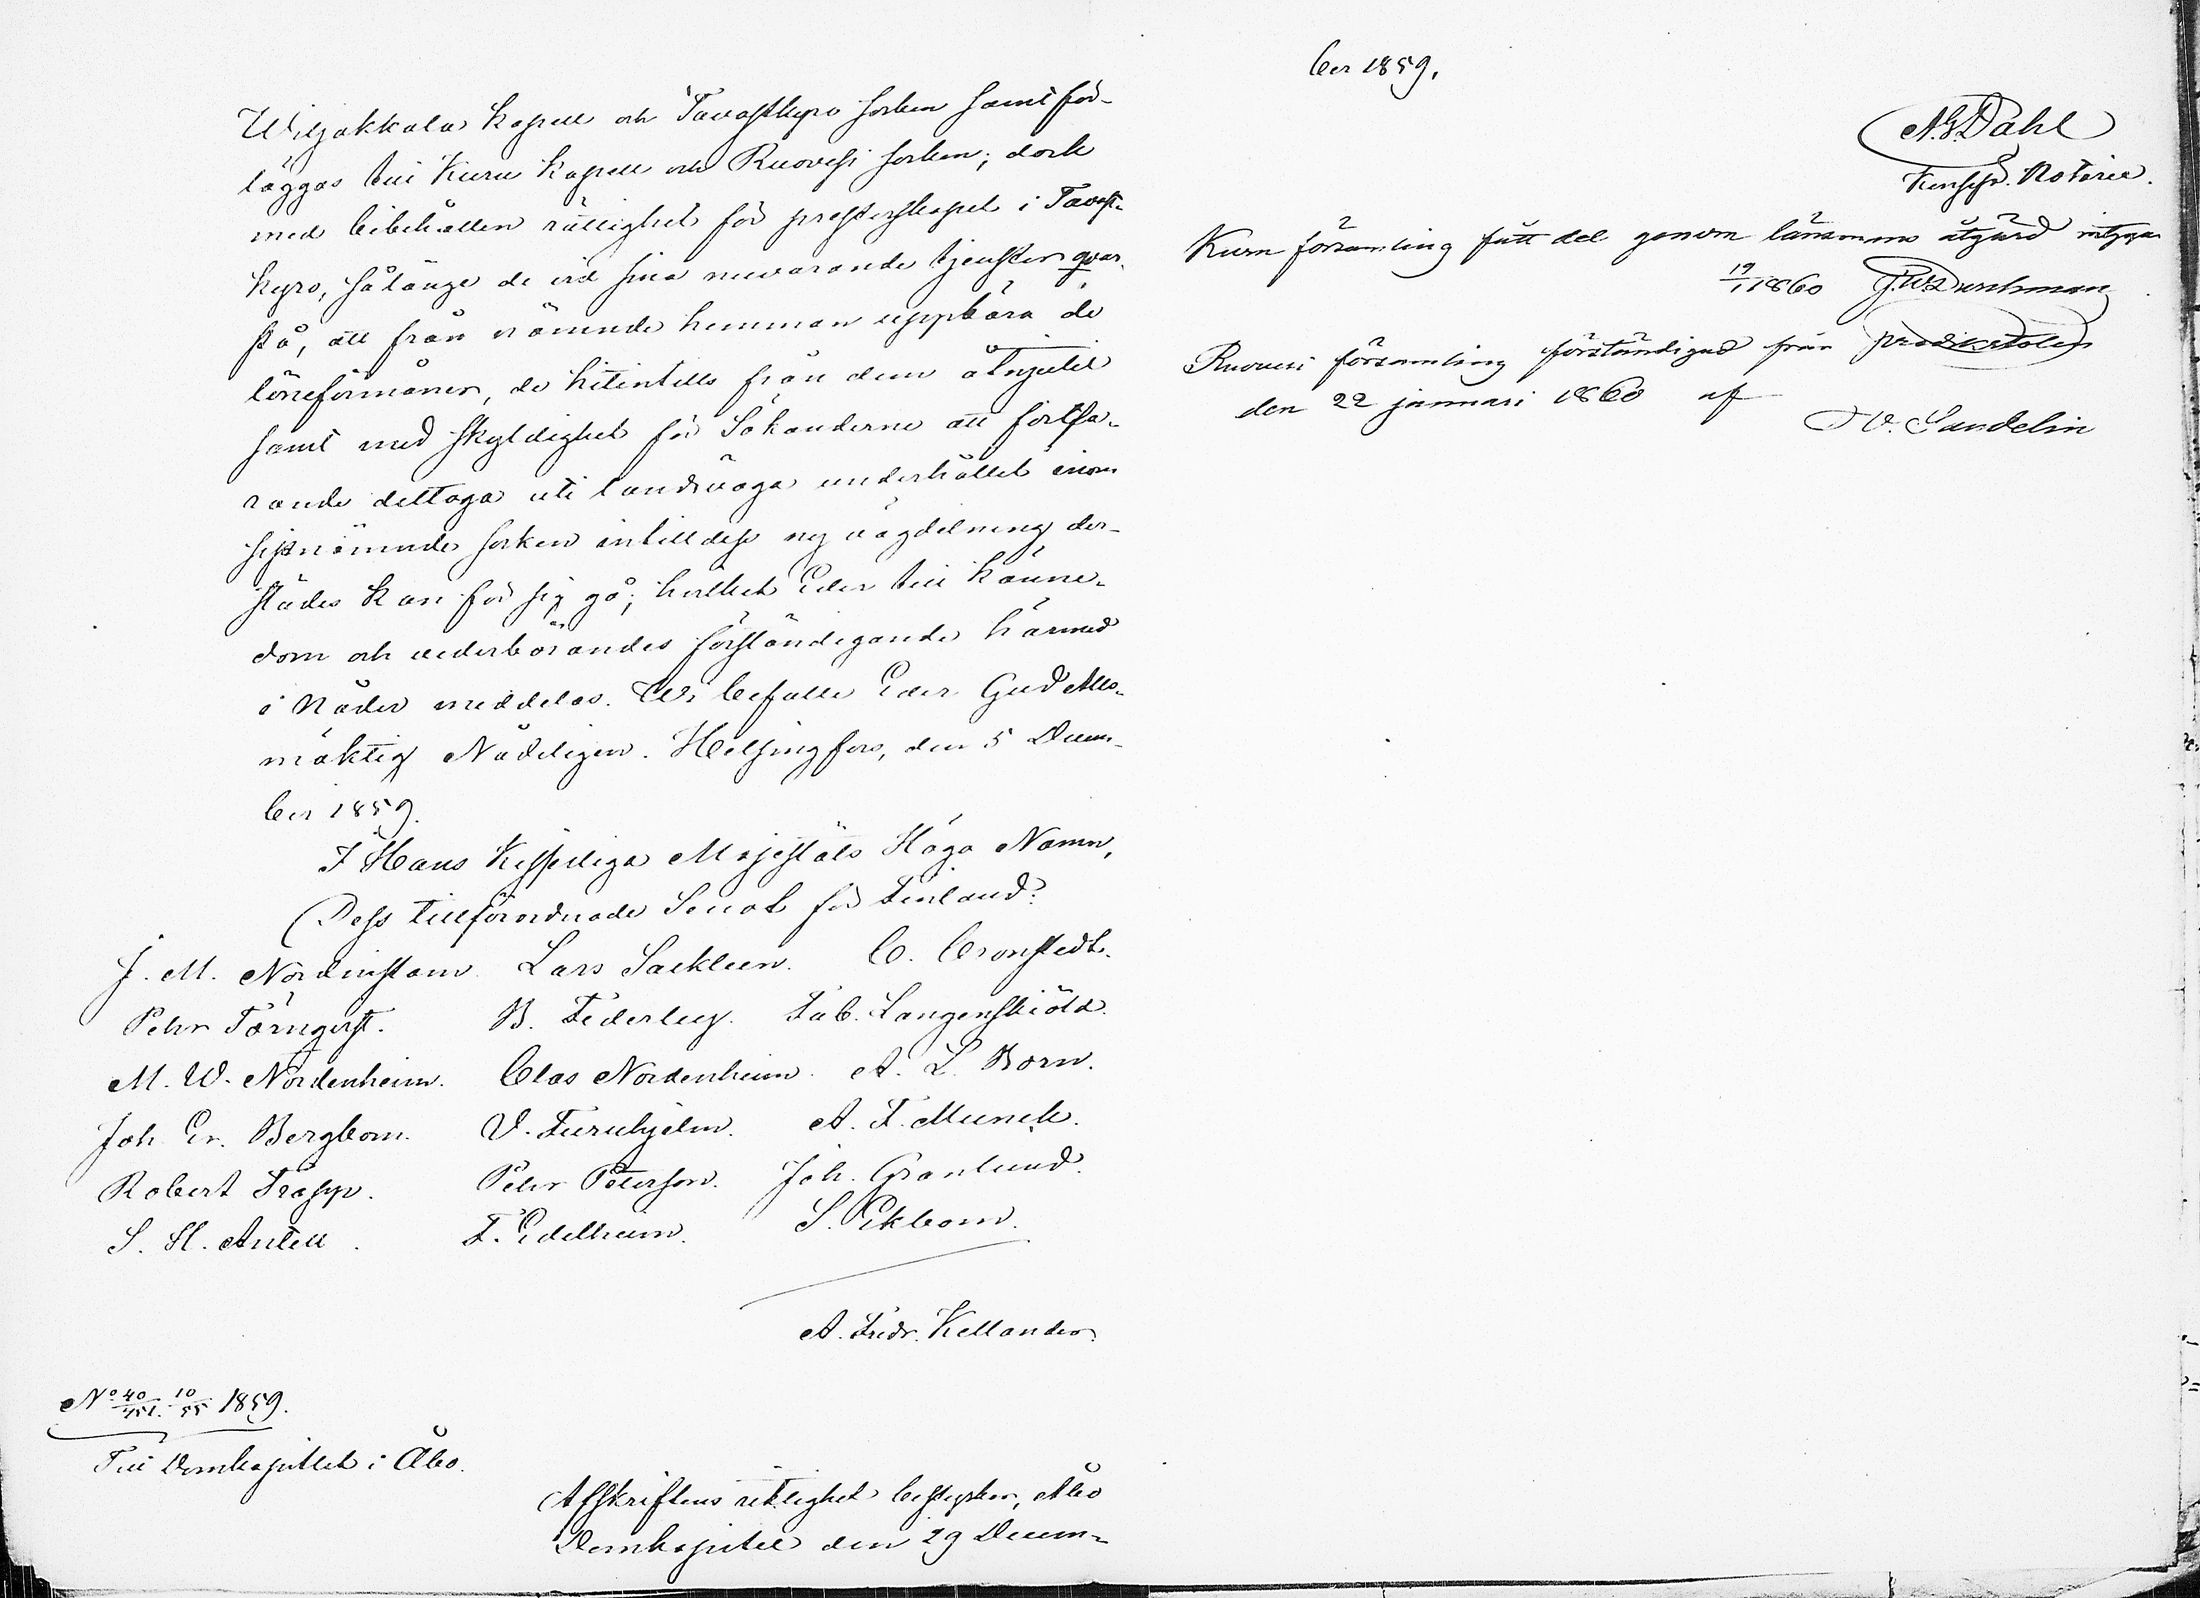 Wiljakkala Kapell och Tavastkyro socken samt för-
läggas till Kuru Kapell och Ruovesi socken; dock
med bibehållen rättighet för presterskapet i Tavast-
kyro, sålänge de vid sina nuvarande tjenster qvar-
stå, att från nämnde hemman uppbära de
löneförmåner, de hitintills från dem åtnjutit
samt med skyldighet för Sökanderne att fortfa-
rande deltaga uti landsväga underhållet inom
sistnämnde socken intilldess ny vägdelning der-
städes kan för sig gå; hvilket Eder till känne-
dom och vederbörandes förständigande härmed
i Nåder meddelas. Wi befalle Eder Gud Alls-
mäktig Nådeligen. Helsingfors, den 5 Decem-
ber 1859.
I Hans Kejserliga Majestäts Höga Namn,
Dess tillförordnade Senat för Finland:
J. M. Nordenstam. Lars Sackleen. C. Cronstedt.
Pehr Törnqvist. B. Federley. Fab. Langenskiöld.
M. W. Nordenheim. Clas Nordenheim. A. L. Born.
Joh. Er. Bergbom. V. Furuhjelm. A. F. Munck.
Robert Trapp. Pehr Peterson. Joh. Granlund.
S. H. Antell. F. Edelheim. S. Ekbom.
A. Fredr. Kellander.
No 40/451. 10/55 1859.
Till Domkapitlet i Åbo.
Afskriftens riktighet bestyrker, Åbo
Domkapitel den 29 Decem-
ber 1859.
A. G. Dahl
Konsist. Notarie.
Kuru församling fått del genom länsmans åtgärd
19/1 1860
Ruovesi församling förständigad från predikstolen
den 22 januari 1860 af
W. Sandelin